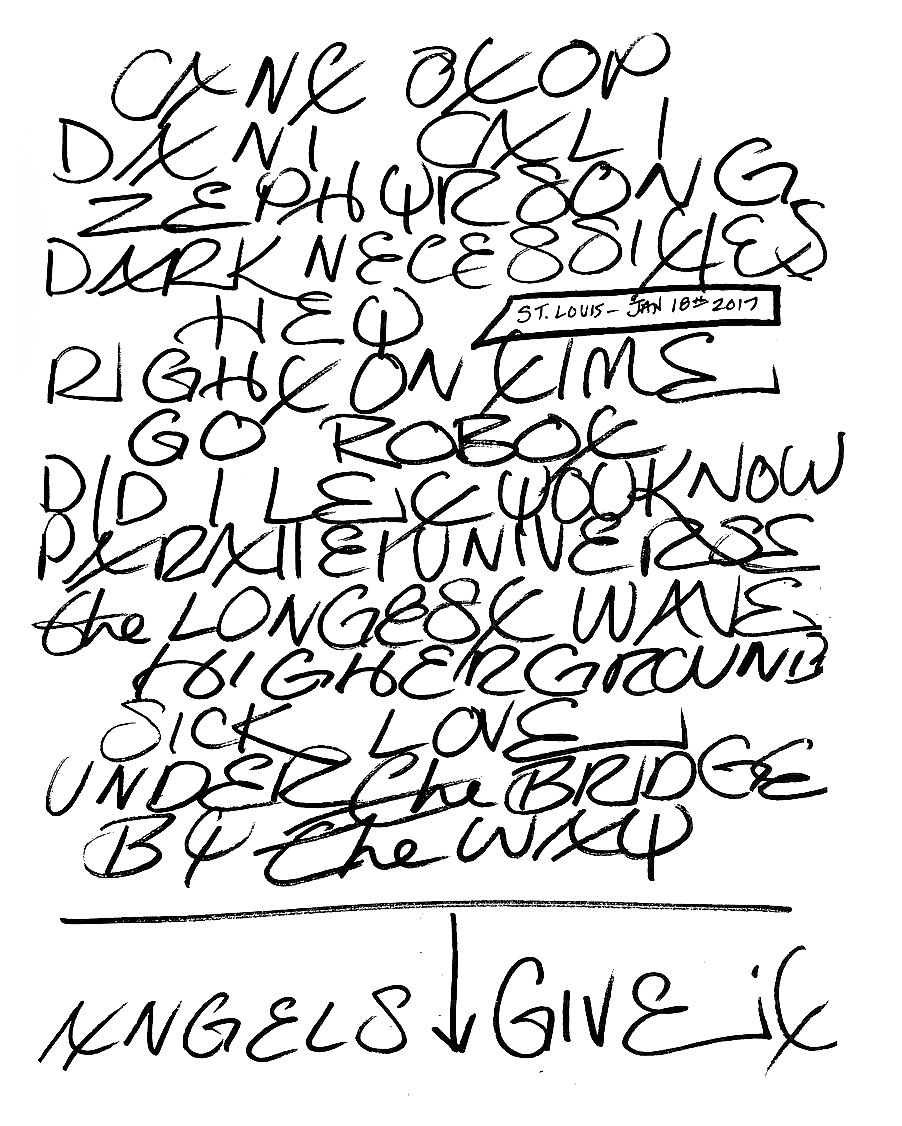 CAN'T STOP
DANI CALI
ZEPHYR SONG
DARK NECESSITIES
HEY
ST. LOUIS - JAN 18TH 2017
RIGHT ON TIME
GO ROBOT
DID I LET YOU KNOW
PARALLEL UNIVERSE
the LONGEST WAVE
HIGHER GROUND
SICK LOVE
UNDER the BRIDGE
BY the WAY
ANGELS ↓ GIVE it